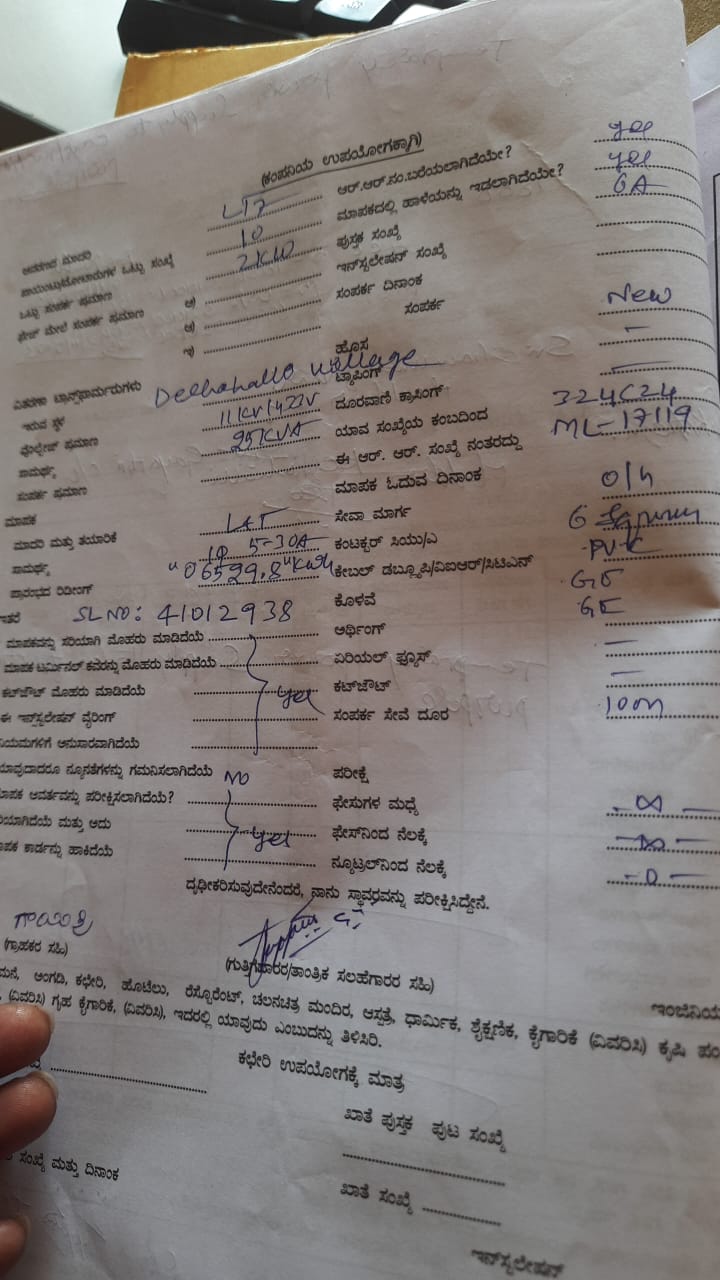 (ಕಂಪನಿಯ ಉಪಯೋಗಕ್ಕಾಗಿ)
LT7 ಆರ್.ಆರ್.ನಂ.ಬರೆಯಲಾಗಿದೆಯೇ? yes
ಪಾಯಿಂಟ್ಟುಗಳ ಒಟ್ಟು ಸಂಖ್ಯೆ 10 ಮಾಪಕದಲ್ಲಿ ಹಾಳೆಯನ್ನು ಇಡಲಾಗಿದೆಯೇ? yes
ಒಟ್ಟು ಸಂಪರ್ಕ ಪ್ರಮಾಣ 2KW ಪುಸ್ತಕ ಸಂಖ್ಯೆ 6A
ಫೇಜ್ ಮೇಲೆ ಸಂಪರ್ಕ ಪ್ರಮಾಣ ಇನ್‌ಸ್ಟಲೇಷನ್ ಸಂಖ್ಯೆ
ಸಂಪರ್ಕ ದಿನಾಂಕ
ಸಂಪರ್ಕ
ಹೊಸ New
ವಿತರಣಾ ಟ್ರಾನ್ಸ್‌ಫಾರ್ಮರುಗಳು ಟ್ಯಾಪಿಂಗ್ –
ಇರುವ ಸ್ಥಳ ದೂರವಾಣಿ ಕ್ರಾಸಿಂಗ್ –
ವೋಲ್ಟೇಜ್ ಪ್ರಮಾಣ 11KV/433V ಯಾವ ಸಂಖ್ಯೆಯ ಕಂಬದಿಂದ 324C24
ಸಾಮರ್ಥ್ಯ 25KVA ಈ ಆರ್. ಆರ್. ಸಂಖ್ಯೆ ನಂತರದ್ದು ML-17119
ಸಂಪರ್ಕ ಪ್ರಮಾಣ ಮಾಪಕ ಓದುವ ದಿನಾಂಕ
ಮಾಪಕ ಸೇವಾ ಮಾರ್ಗ o/h
ಮಾದರಿ ಮತ್ತು ತಯಾರಿಕೆ L&T ಕಂಟಕ್ಟರ್ ಸಿಯು/ಎ 6
ಸಾಮರ್ಥ್ಯ 1Φ 5-30A ಕೇಬಲ್ ಡಬ್ಲ್ಯೂಪಿ/ವಿಐಆರ್/ಸಿಟಿಎಸ್ PVC
ಪ್ರಾರಂಭದ ರಿಡಿಂಗ್ "06529.8"KWh ಕೊಳವೆ GE
ಇತರೆ SL NO: 41012938 ಅರ್ಥಿಂಗ್ GE
ಮಾಪಕವನ್ನು ಸರಿಯಾಗಿ ಮೊಹರು ಮಾಡಿದೆಯೆ ಏರಿಯಲ್ ಫ್ಯೂಸ್ –
ಮಾಪಕ ಟರ್ಮಿನಲ್ ಕವರನ್ನು ಮೊಹರು ಮಾಡಿದೆಯೆ ಕಟ್‌ಔಟ್ –
ಕಟ್‌ಔಟ್ ಮೊಹರು ಮಾಡಿದೆಯೆ yes ಸಂಪರ್ಕ ಸೇವೆ ದೂರ 10m
ಈ ಇನ್‌ಸ್ಟಲೇಷನ್ ವೈರಿಂಗ್
ನಿಯಮಗಳಿಗೆ ಅನುಸಾರವಾಗಿದೆಯೆ
ಯಾವುದಾದರೂ ನ್ಯೂನತೆಗಳನ್ನು ಗಮನಿಸಲಾಗಿದೆಯೆ NO ಪರೀಕ್ಷೆ
ಮಾಪಕ ಆವರ್ತವನ್ನು ಪರೀಕ್ಷಿಸಲಾಗಿದೆಯೆ? ಫೇಸುಗಳ ಮಧ್ಯೆ – ∞ –
ಸರಿಯಾಗಿದೆಯೆ ಮತ್ತು ಅದು yes ಫೇಸ್‌ನಿಂದ ನೆಲಕ್ಕೆ – ∞ –
ಮಾಪಕ ಕಾರ್ಡನ್ನು ಹಾಕಿದೆಯೆ ನ್ಯೂಟ್ರಲ್‌ನಿಂದ ನೆಲಕ್ಕೆ – 0 –
ದೃಢೀಕರಿಸುವುದೇನೆಂದರೆ, ನಾನು ಸ್ಥಾವರವನ್ನು ಪರೀಕ್ಷಿಸಿದ್ದೇನೆ.
ಗಾಯಿತ್ರಿ
(ಗ್ರಾಹಕರ ಸಹಿ) (ಗುತ್ತಿಗೆದಾರರ/ತಾಂತ್ರಿಕ ಸಲಹೆಗಾರರ ಸಹಿ) ಇಂಜಿನಿಯ
ಮನೆ, ಅಂಗಡಿ, ಕಛೇರಿ, ಹೊಟೆಲು, ರೆಸ್ಟೊರೆಂಟ್, ಚಲನಚಿತ್ರ ಮಂದಿರ, ಆಸ್ಪತ್ರೆ, ಧಾರ್ಮಿಕ, ಶೈಕ್ಷಣಿಕ, ಕೈಗಾರಿಕೆ (ವಿವರಿಸಿ) ಕೃಷಿ ಪಂ
(ವಿವರಿಸಿ) ಗೃಹ ಕೈಗಾರಿಕೆ, (ವಿವರಿಸಿ), ಇದರಲ್ಲಿ ಯಾವುದು ಎಂಬುದನ್ನು ತಿಳಿಸಿರಿ.
ಕಛೇರಿ ಉಪಯೋಗಕ್ಕೆ ಮಾತ್ರ
ಖಾತೆ ಪುಸ್ತಕ ಪುಟ ಸಂಖ್ಯೆ
ಸಂಖ್ಯೆ ಮತ್ತು ದಿನಾಂಕ ಖಾತೆ ಸಂಖ್ಯೆ
ಇನ್‌ಸ್ಟಲೇಷನ್